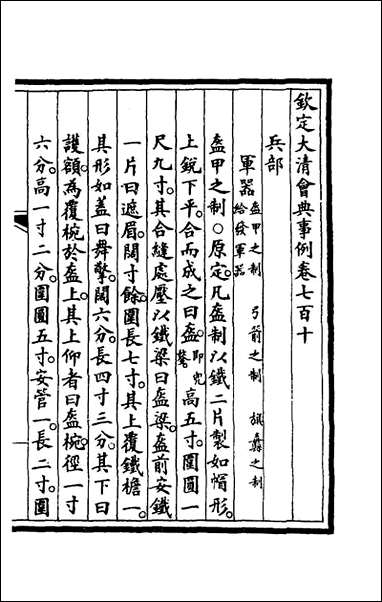 欽定大清會典事例卷七百十
兵部
軍器 盔甲之制 弓箭之制 旗纛之制
給發軍器
盔甲之制○原定。凡盔制以鐵二片製如帽形。
上銳下平。合而成之曰盔。即兜鍪。高五寸。圍圓一
尺九寸。其合縫處壓以鐵梁曰盔梁。盔前安鐵
一片曰遮眉。闊寸餘。圍長七寸。其上覆鐵檐一。
其形如蓋曰舞擎。闊六分。長四寸三分。其下曰
護額。為覆椀於盔上。其上仰者曰盔椀。徑一寸
六分。高一寸二分。圍圓五寸。安管一。長二寸。圍